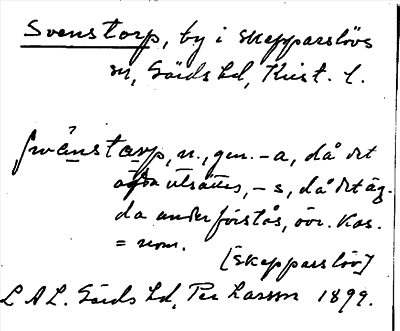 Svenstorp, by i Skepparslövs
sn, Gärds hd, Krist. l.
svänstarp, n., gen. -a, då det
ofta utsättes, -s, då det äg-
da underförstås, övr. kas.
= nom.
[Skepparslöv]
L A L. Gärds hd, Per Larsson 1899.